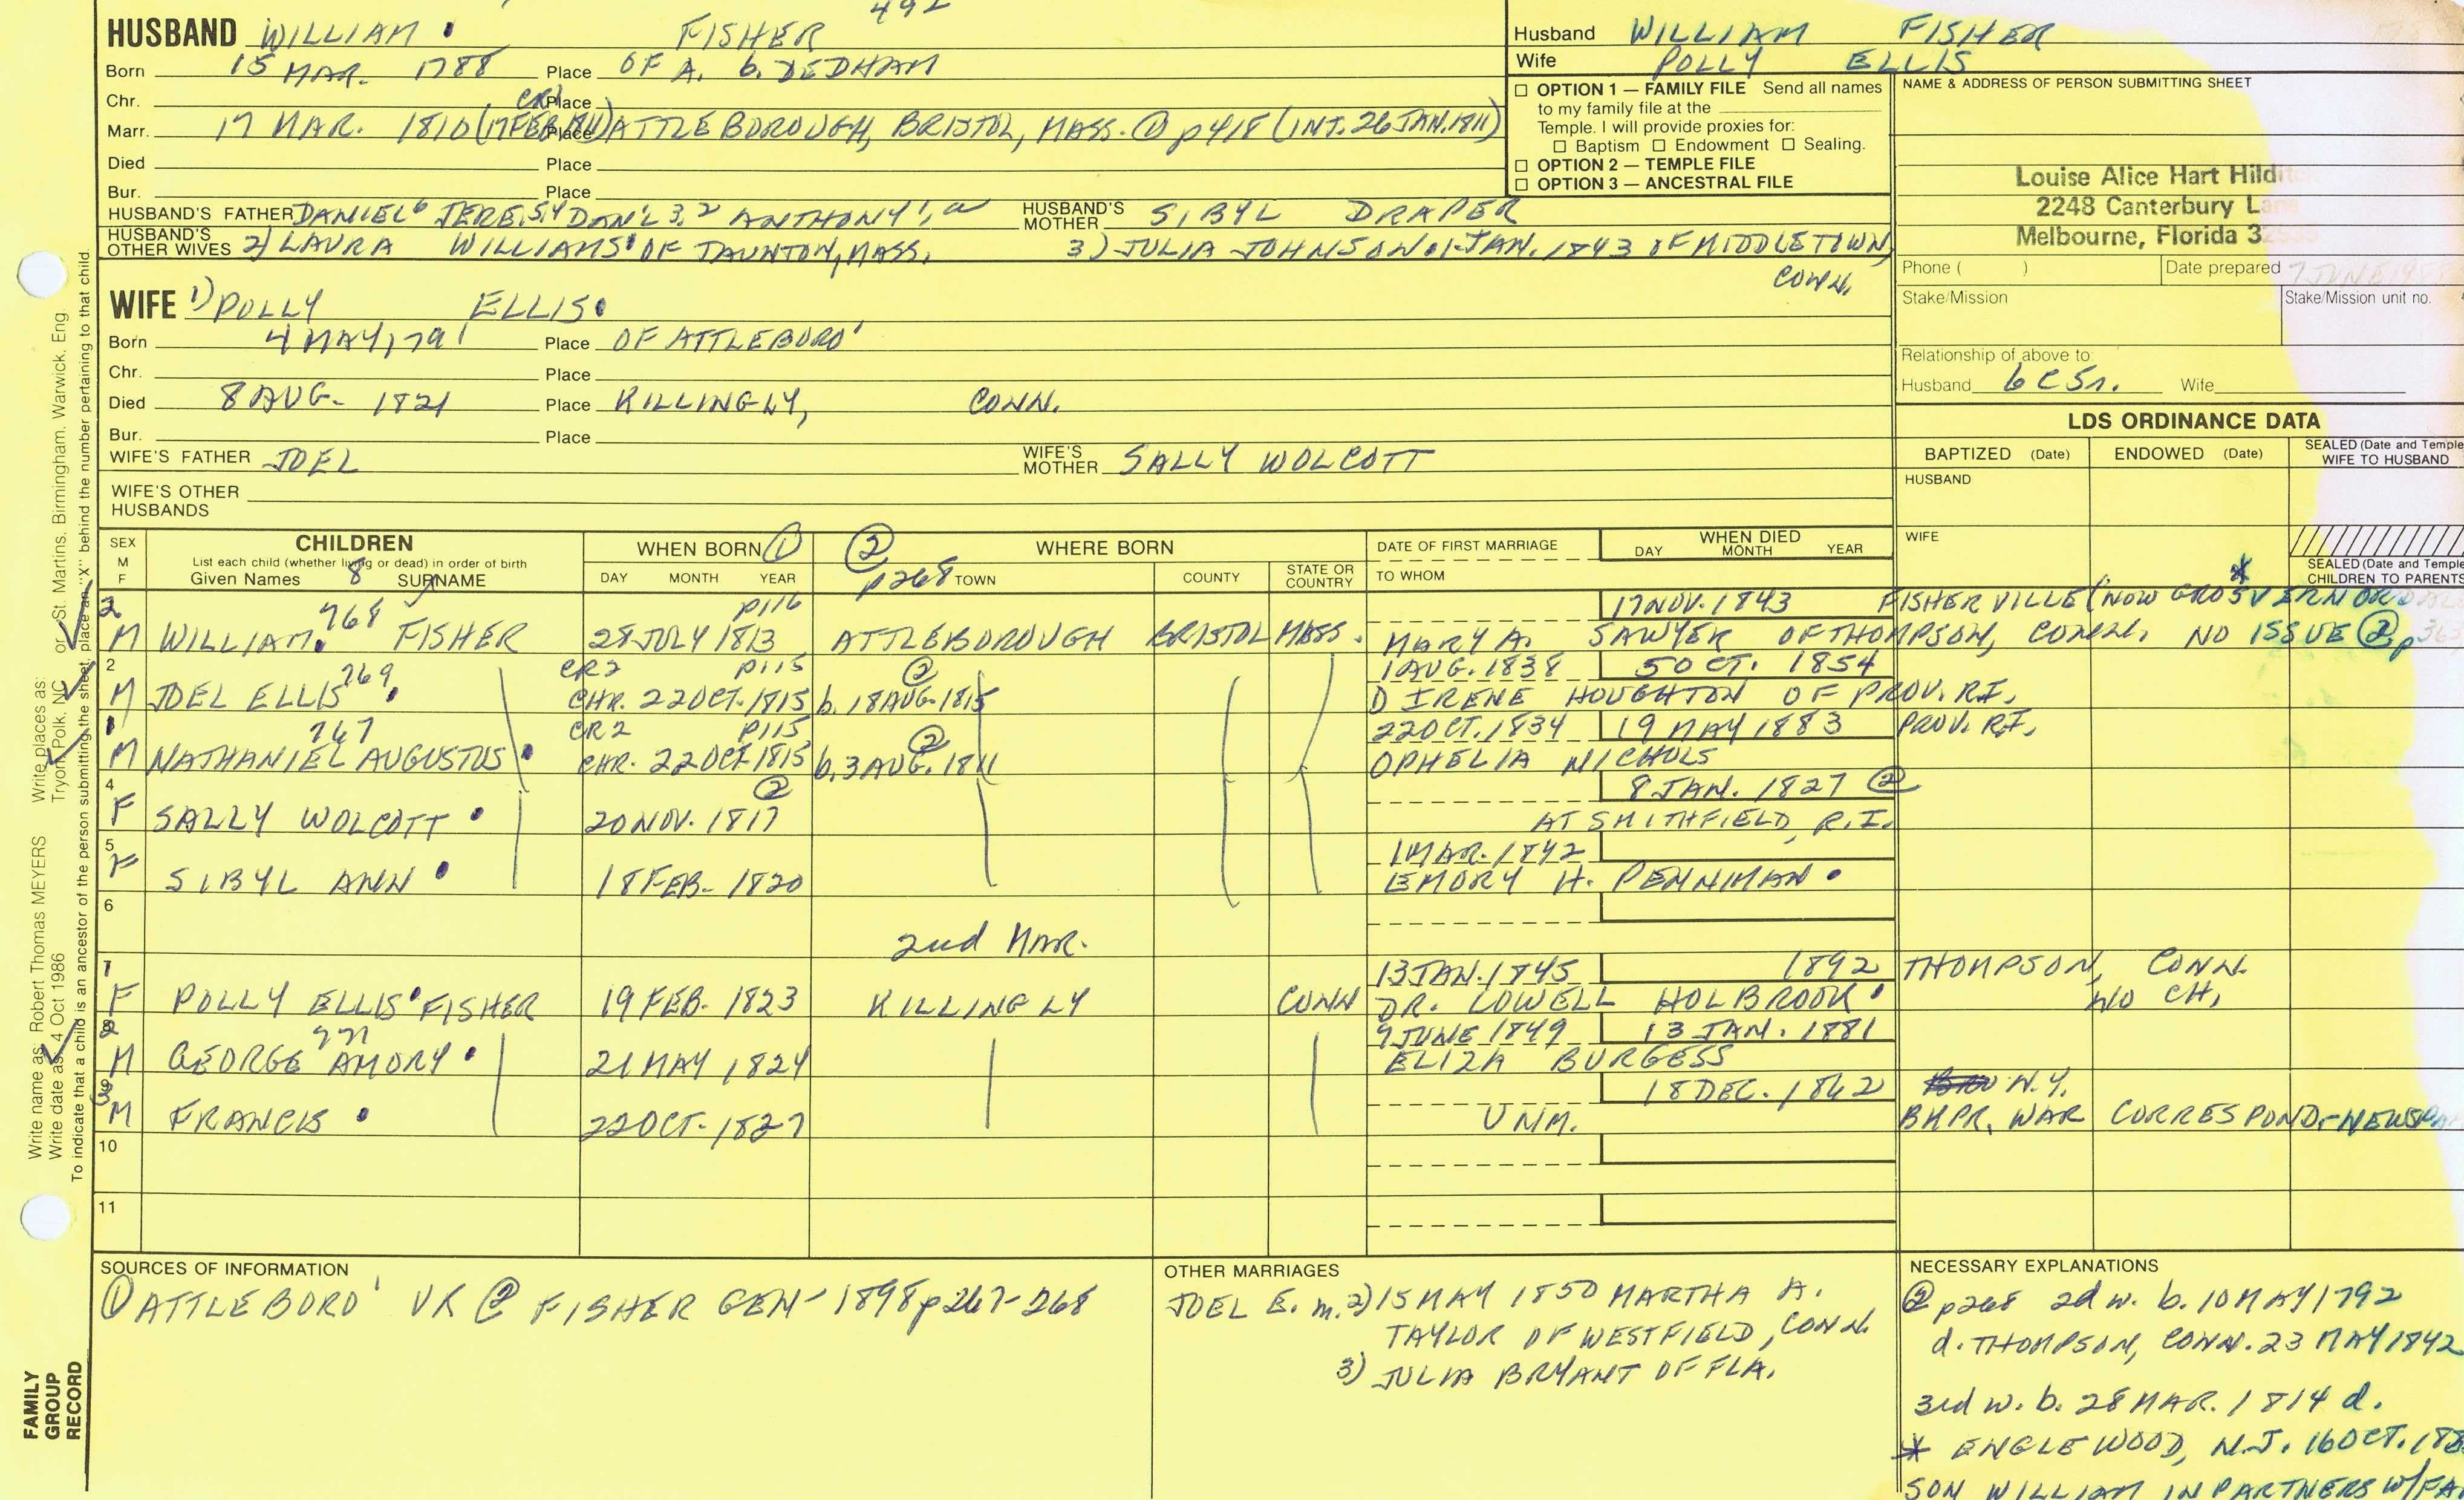 492
HUSBAND WILLIAM FISHER
Born 15 MAR. 1788 Place OF A. b. DEDHAM
Chr. CR1 Place
Marr. 17 MAR. 1810 (17 FEB. 1811) Place ATTLEBOROUGH, BRISTOL, MASS. ① p418 (INT. 26 JAN. 1811)
Died Place
Bur. Place
HUSBAND'S FATHER DANIEL6 JERE.5,4 DAN'L 3,2 ANTHONY1, HUSBAND'S MOTHER SIBYL DRAPER
HUSBAND'S OTHER WIVES 2) LAURA WILLIAMS OF TAUNTON, MASS. 3) JULIA JOHNSON 1 JAN. 1843 OF MIDDLETOWN,
CONN.
WIFE 1) POLLY ELLIS
Born 4 MAY 1791 Place OF ATTLEBORO'
Chr. Place
Died 8 AUG. 1821 Place KILLINGLY, CONN.
Bur. Place
WIFE'S FATHER JOEL WIFE'S MOTHER SALLY WOLCOTT
WIFE'S OTHER
HUSBANDS
Husband WILLIAM FISHER
Wife POLLY ELLIS
□ OPTION 1 — FAMILY FILE Send all names
to my family file at the
Temple. I will provide proxies for:
□ Baptism □ Endowment □ Sealing.
□ OPTION 2 — TEMPLE FILE
□ OPTION 3 — ANCESTRAL FILE
NAME & ADDRESS OF PERSON SUBMITTING SHEET
Louise Alice Hart
2248 Canterbury
Melbourne, Florida
Phone ( ) Date prepared 7 JUNE
Stake/Mission Stake/Mission unit no.
Relationship of above to:
Husband 6C5r. Wife
LDS ORDINANCE DATA
BAPTIZED (Date) ENDOWED (Date) SEALED (Date and Temple
WIFE TO HUSBAND
HUSBAND
WIFE
SEALED (Date and Temple
CHILDREN TO PARENTS
SEX
M
F
CHILDREN
List each child (whether living or dead) in order of birth
Given Names 8 SURNAME
WHEN BORN ①
DAY MONTH YEAR
② p268 WHERE BORN
TOWN COUNTY STATE OR COUNTRY
DATE OF FIRST MARRIAGE
TO WHOM
WHEN DIED
DAY MONTH YEAR
2 768 p116 17 NOV. 1843 FISHERVILLE (NOW *
M WILLIAM FISHER 28 JULY 1813 ATTLEBOROUGH BRISTOL MASS. MARY A. SAWYER OF THOMPSON, CONN. NO ISSUE ② p
2 769 CR2 p115 ② 1 AUG. 1838 5 OCT. 1854
M JOEL ELLIS CHR. 22 OCT. 1815 b. 18 AUG. 1815 D IRENE HOUGHTON OF PROV. R.I.
1 767 CR2 p115 ② 22 OCT. 1834 19 MAY 1883 PROV. R.I.
M NATHANIEL AUGUSTUS CHR. 22 OCT. 1815 b. 3 AUG. 1811 OPHELIA NICHOLS
4 ② 8 JAN. 1827 ②
F SALLY WOLCOTT 20 NOV. 1817 AT SMITHFIELD, R.I.
5 1 MAR. 1842
F SIBYL ANN 18 FEB. 1820 EMORY H. PENNIMAN
6
2nd MAR.
7 13 JAN. 1845 1892 THOMPSON, CONN.
F POLLY ELLIS FISHER 19 FEB. 1823 KILLINGLY CONN DR. LOWELL HOLBROOK NO CH.
8 771 9 JUNE 1849 13 JAN. 1881
M GEORGE AMORY 21 MAY 1824 ELIZA BURGESS
9 3 18 DEC. 1862 N.Y.
M FRANCIS 22 OCT. 1827 UNM. WAR CORRESPOND-
10
11
SOURCES OF INFORMATION
① ATTLEBORO' VR ② FISHER GEN- 1898 p267-268
OTHER MARRIAGES
JOEL E. m. 2) 15 MAY 1850 MARTHA A.
TAYLOR OF WESTFIELD, CONN.
3) JULIA BRYANT OF FLA.
NECESSARY EXPLANATIONS
② p268 2d w. b. 10 MAY 1792
d. THOMPSON, CONN. 23 MAY 1842
3rd w. b. 28 MAR. 1814 d.
* ENGLEWOOD, N.J. 16 OCT.
SON WILLIAM IN PARTNERS W/
Write name as: Robert Thomas MEYERS Write places as: Tryon, Polk, NC or St. Martins, Birmingham, Warwick, Eng.
Write date as: 4 Oct 1986
To indicate that a child is an ancestor of the person submitting the sheet, place an "X" behind the number pertaining to that child.
FAMILY
GROUP
RECORD